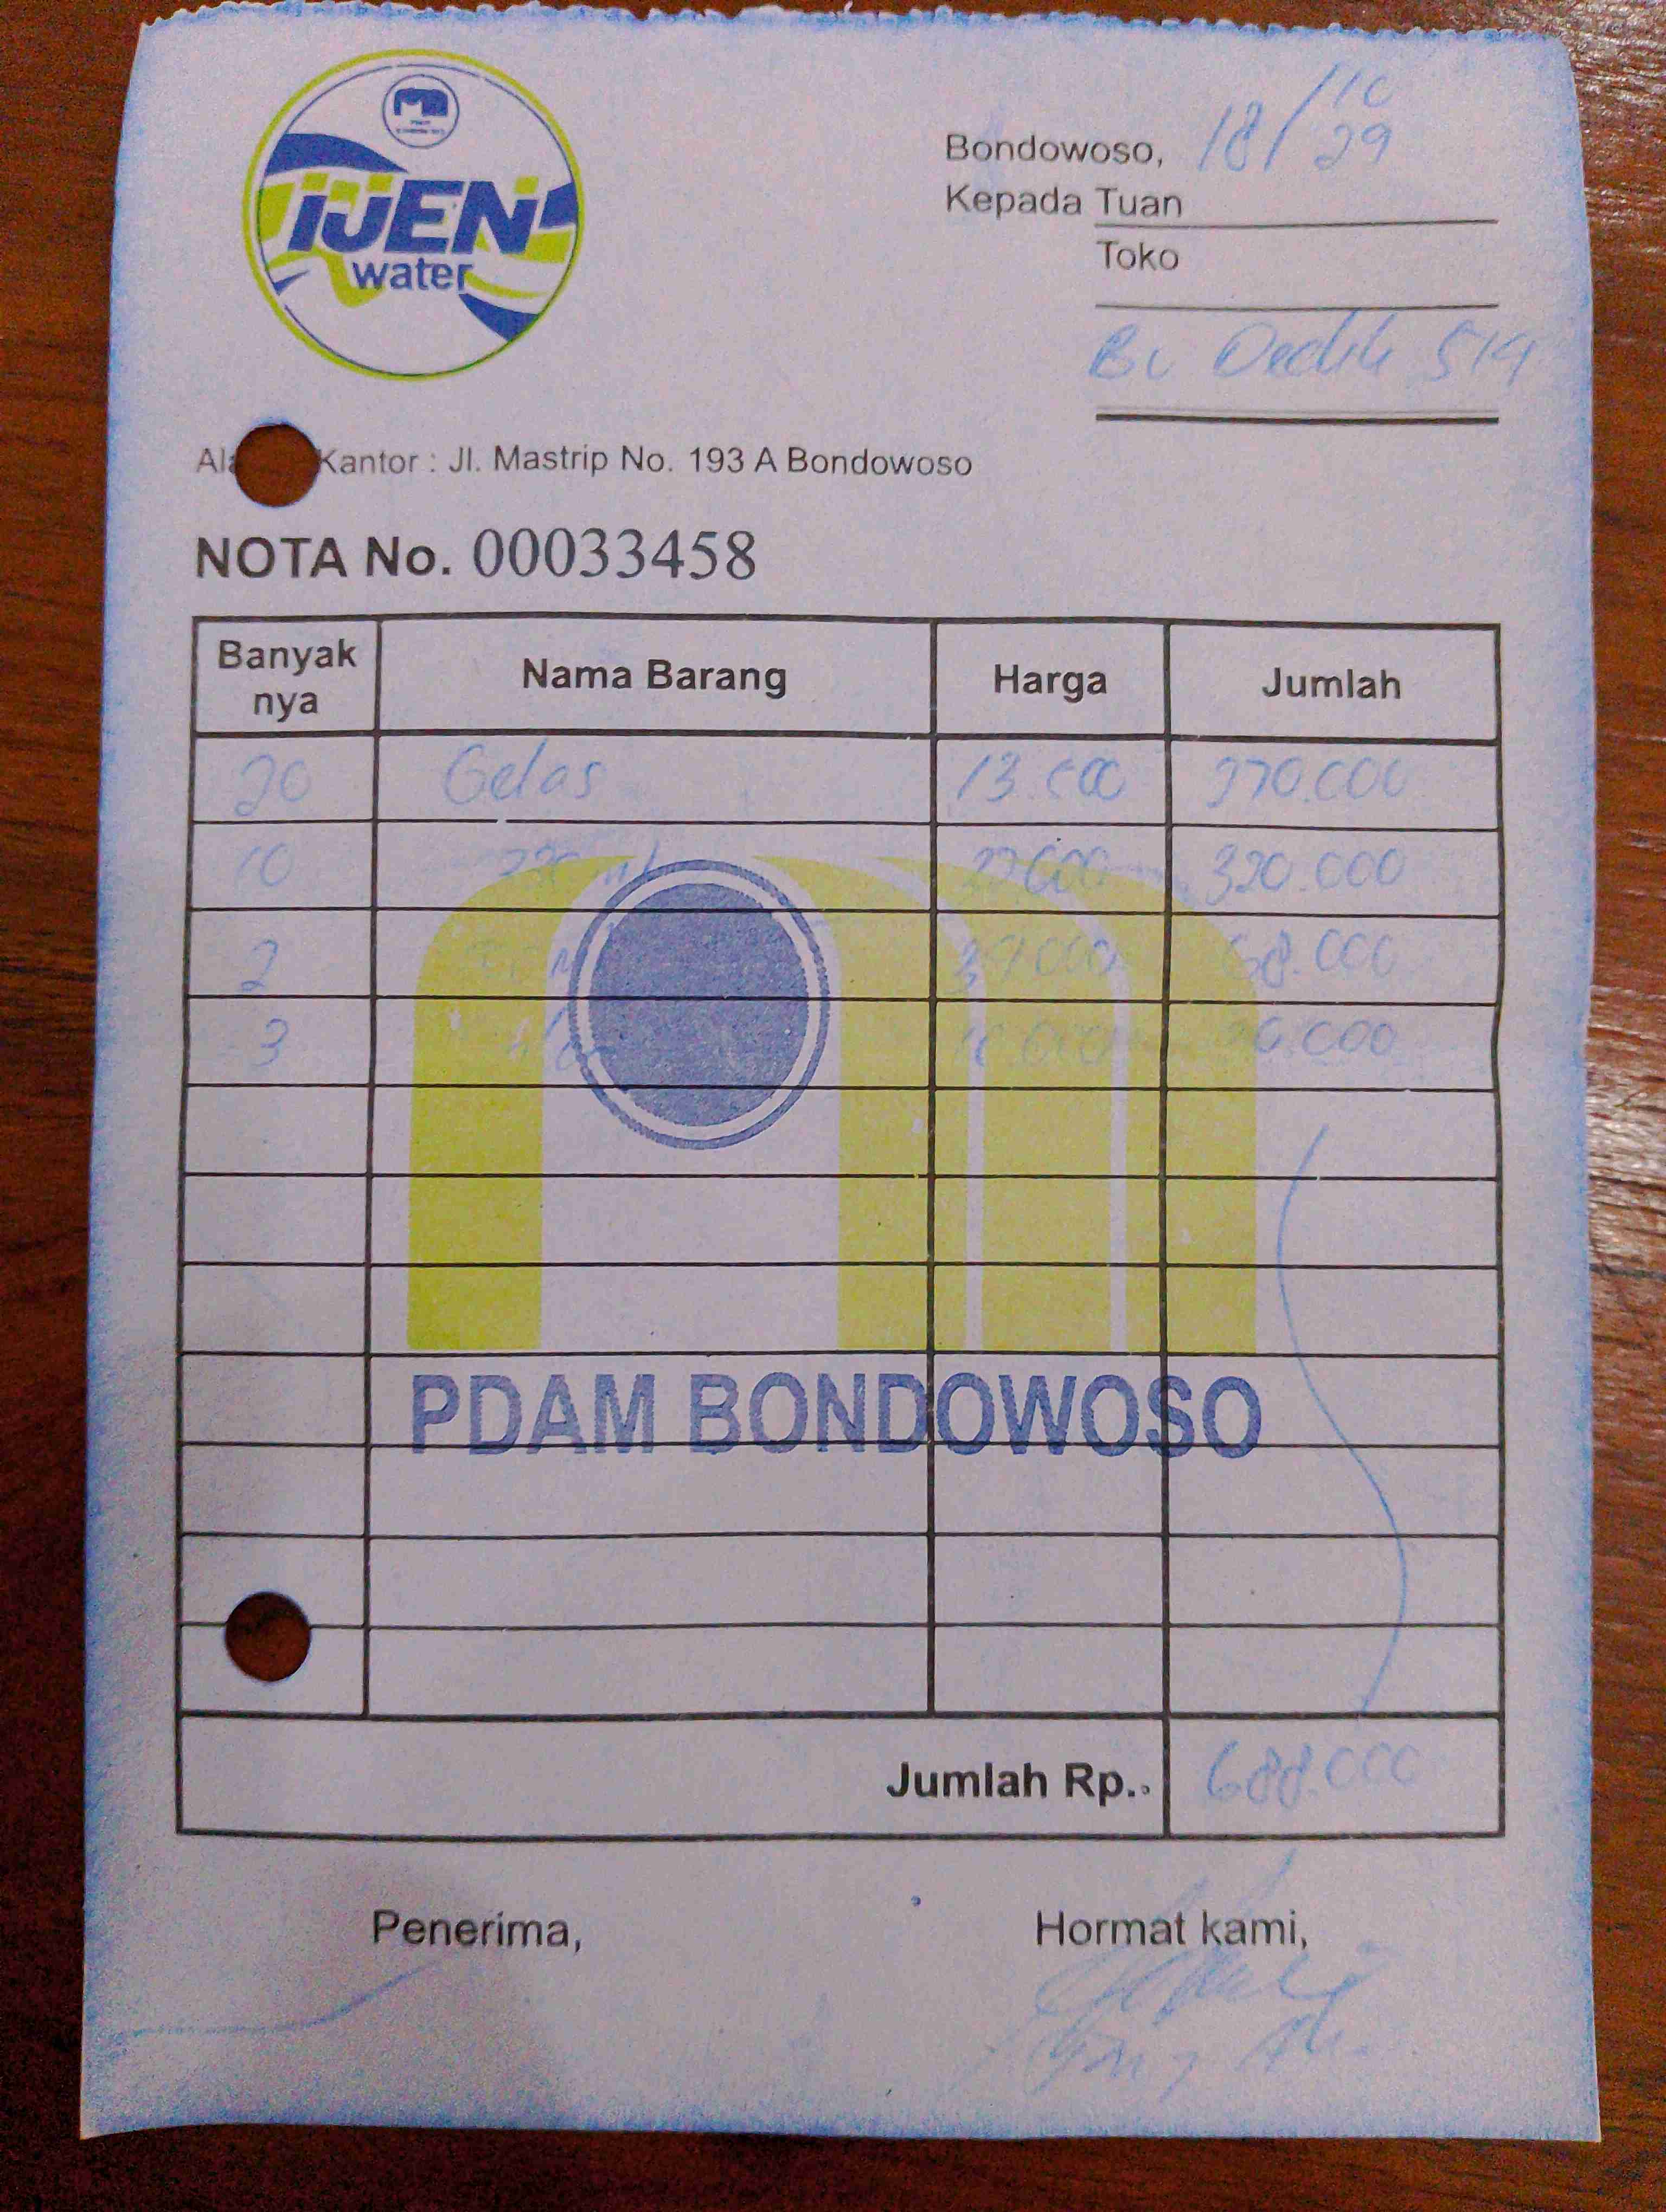 iJEN
water
Bondowoso, 18/10 29
Kepada Tuan
Toko
Bu Dedik 514
Kantor : Jl. Mastrip No. 193 A Bondowoso
NOTA No. 00033458
Banyak nya Nama Barang Harga Jumlah
20 Gelas 13.500 270.000
10 220 ml 32000 320.000
2 34.000 68.000
3 10.000 30.000
PDAM BONDOWOSO
Jumlah Rp.. 688.000
Penerima, Hormat kami,